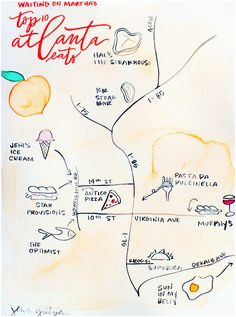 WAITING ON MARTHA'S
top 10
atlanta
eats
HAL'S
THE STEAKHOUSE
GA-400
KR
STEAK
BAR
I-85
I-75
I-85
JENI'S
ICE
CREAM
14TH ST
PASTA DA
PULCINELLA
ANTICO
PIZZA
STAR
PROVISIONS
10TH ST
VIRGINIA AVE
MURPHY'S
THE
OPTIMIST
KROG ST
SUPERICA
DEKALB AVE
SUN
IN MY
BELLY